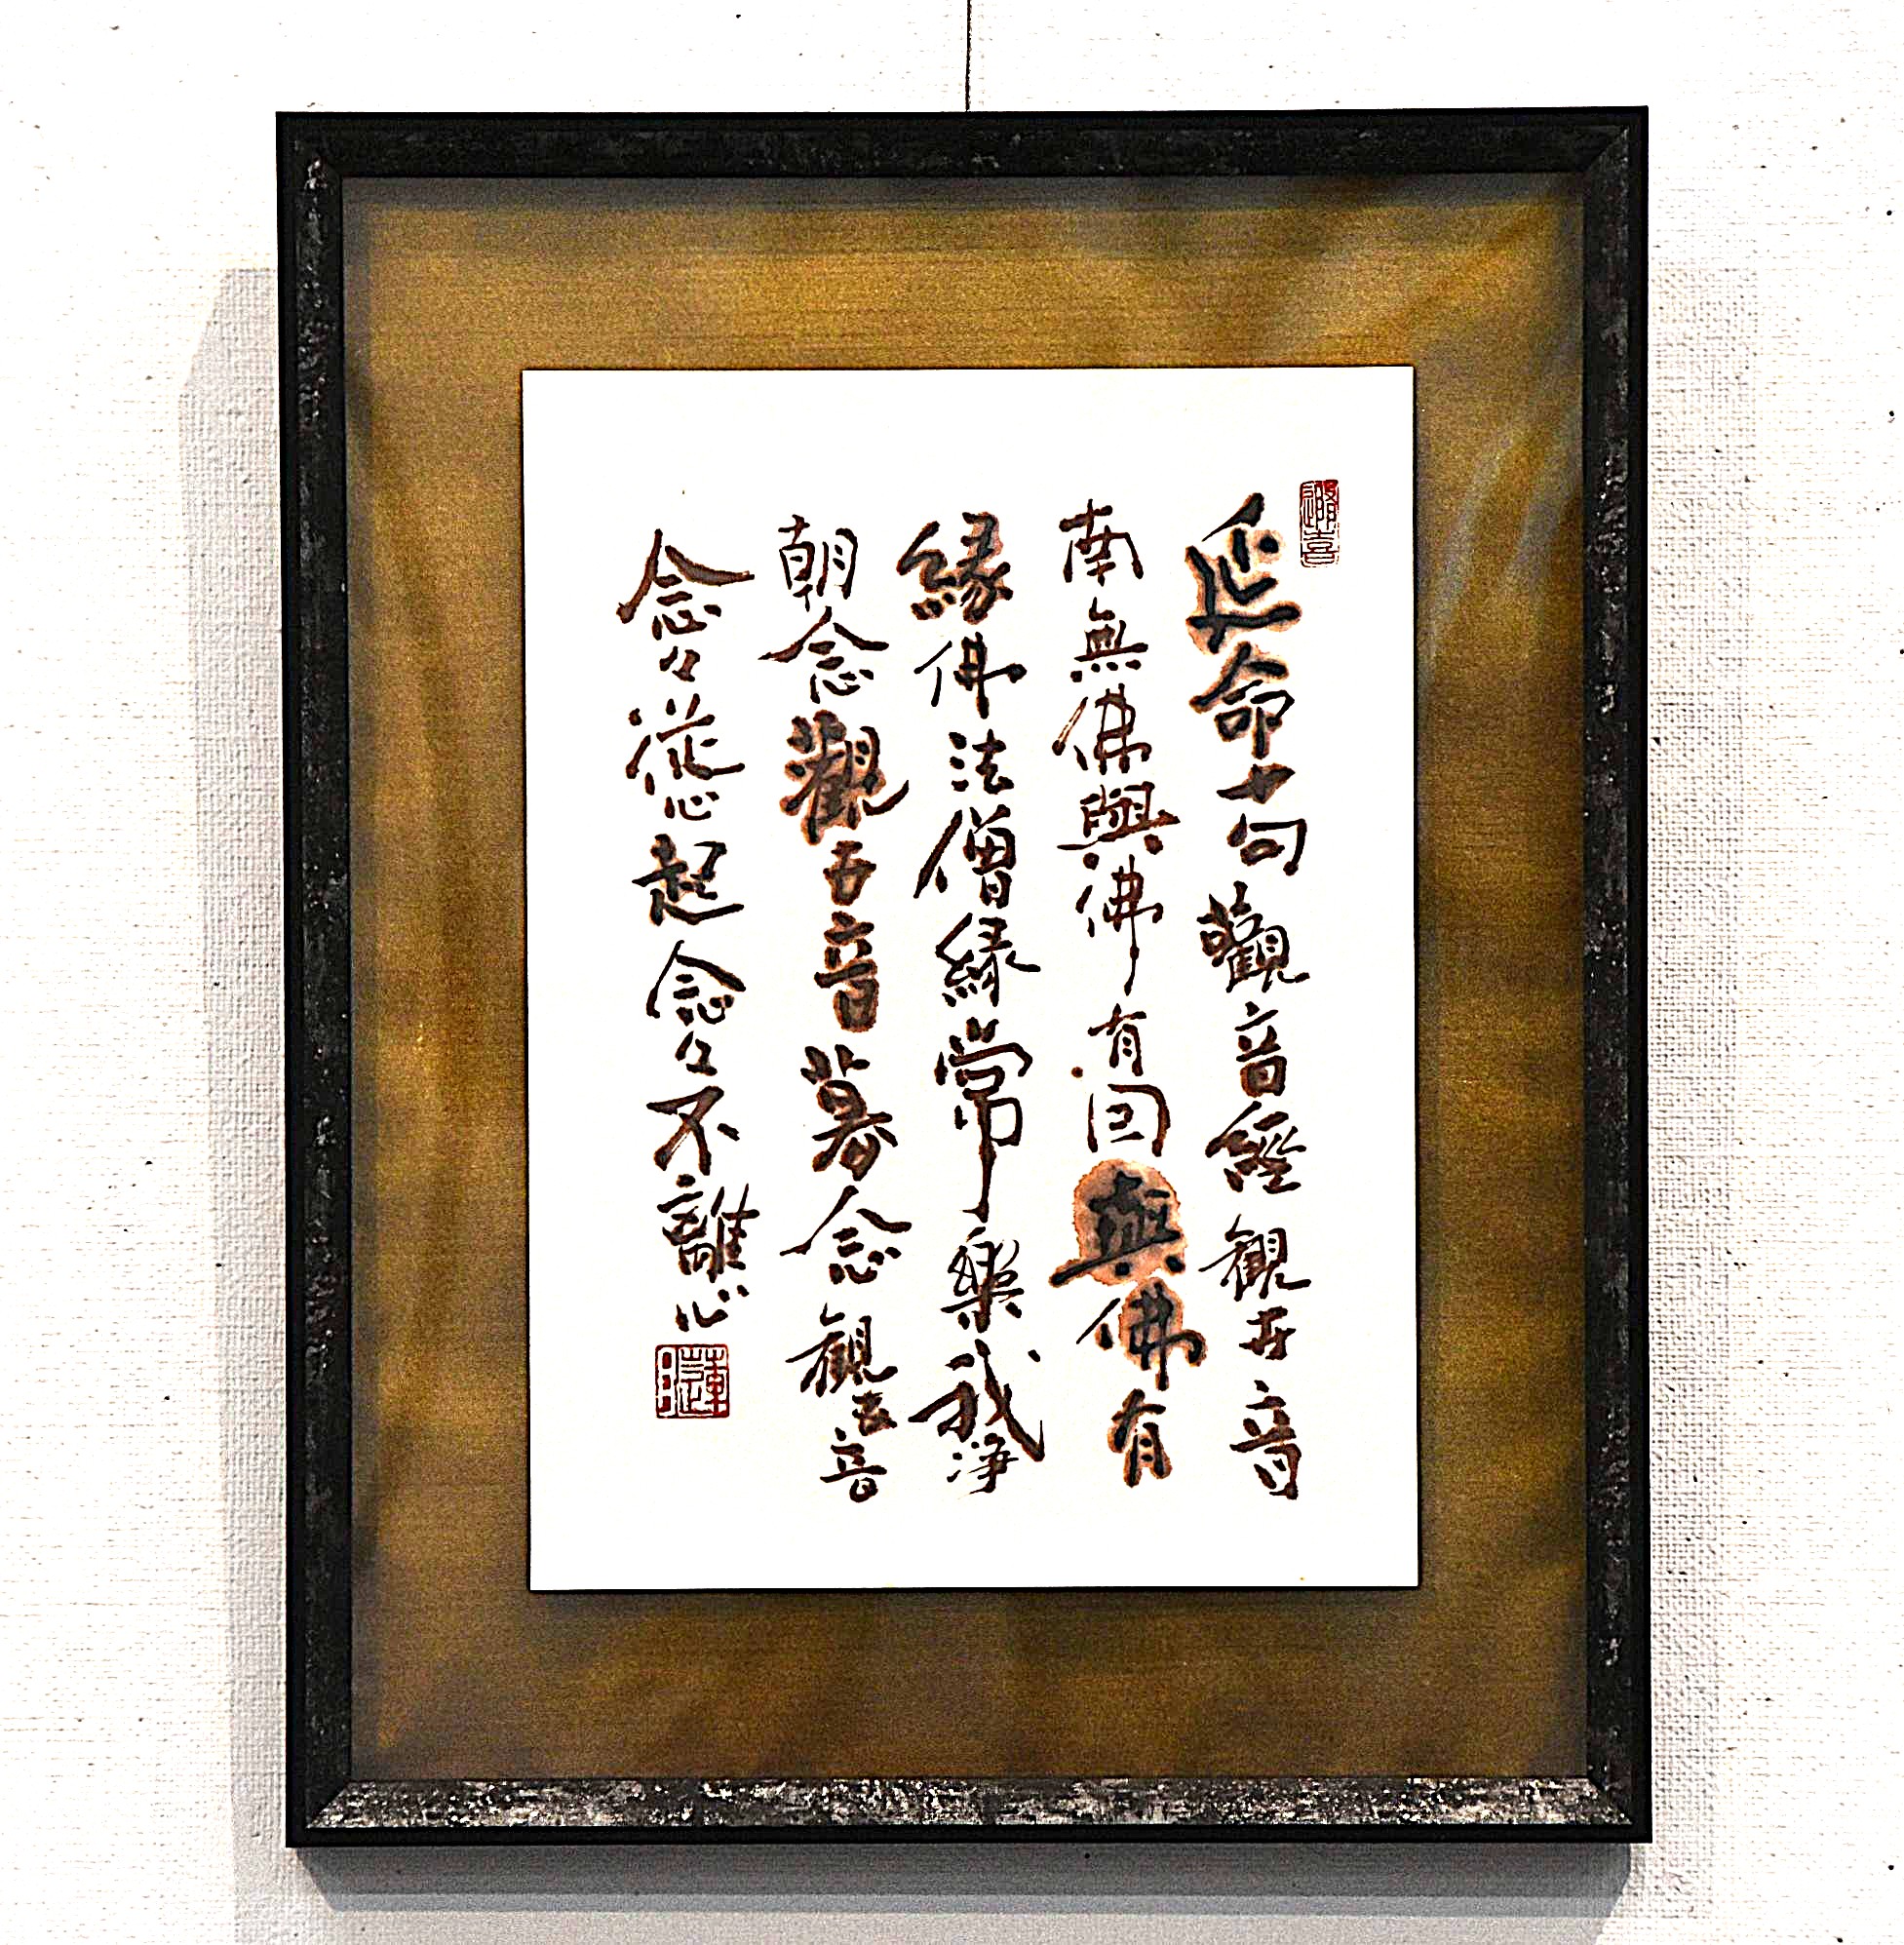 延命十句觀音經觀世音
南無佛與佛有因與佛有
縁佛法僧縁常樂我浄
朝念觀世音暮念觀世音
念々從心起念々不離心